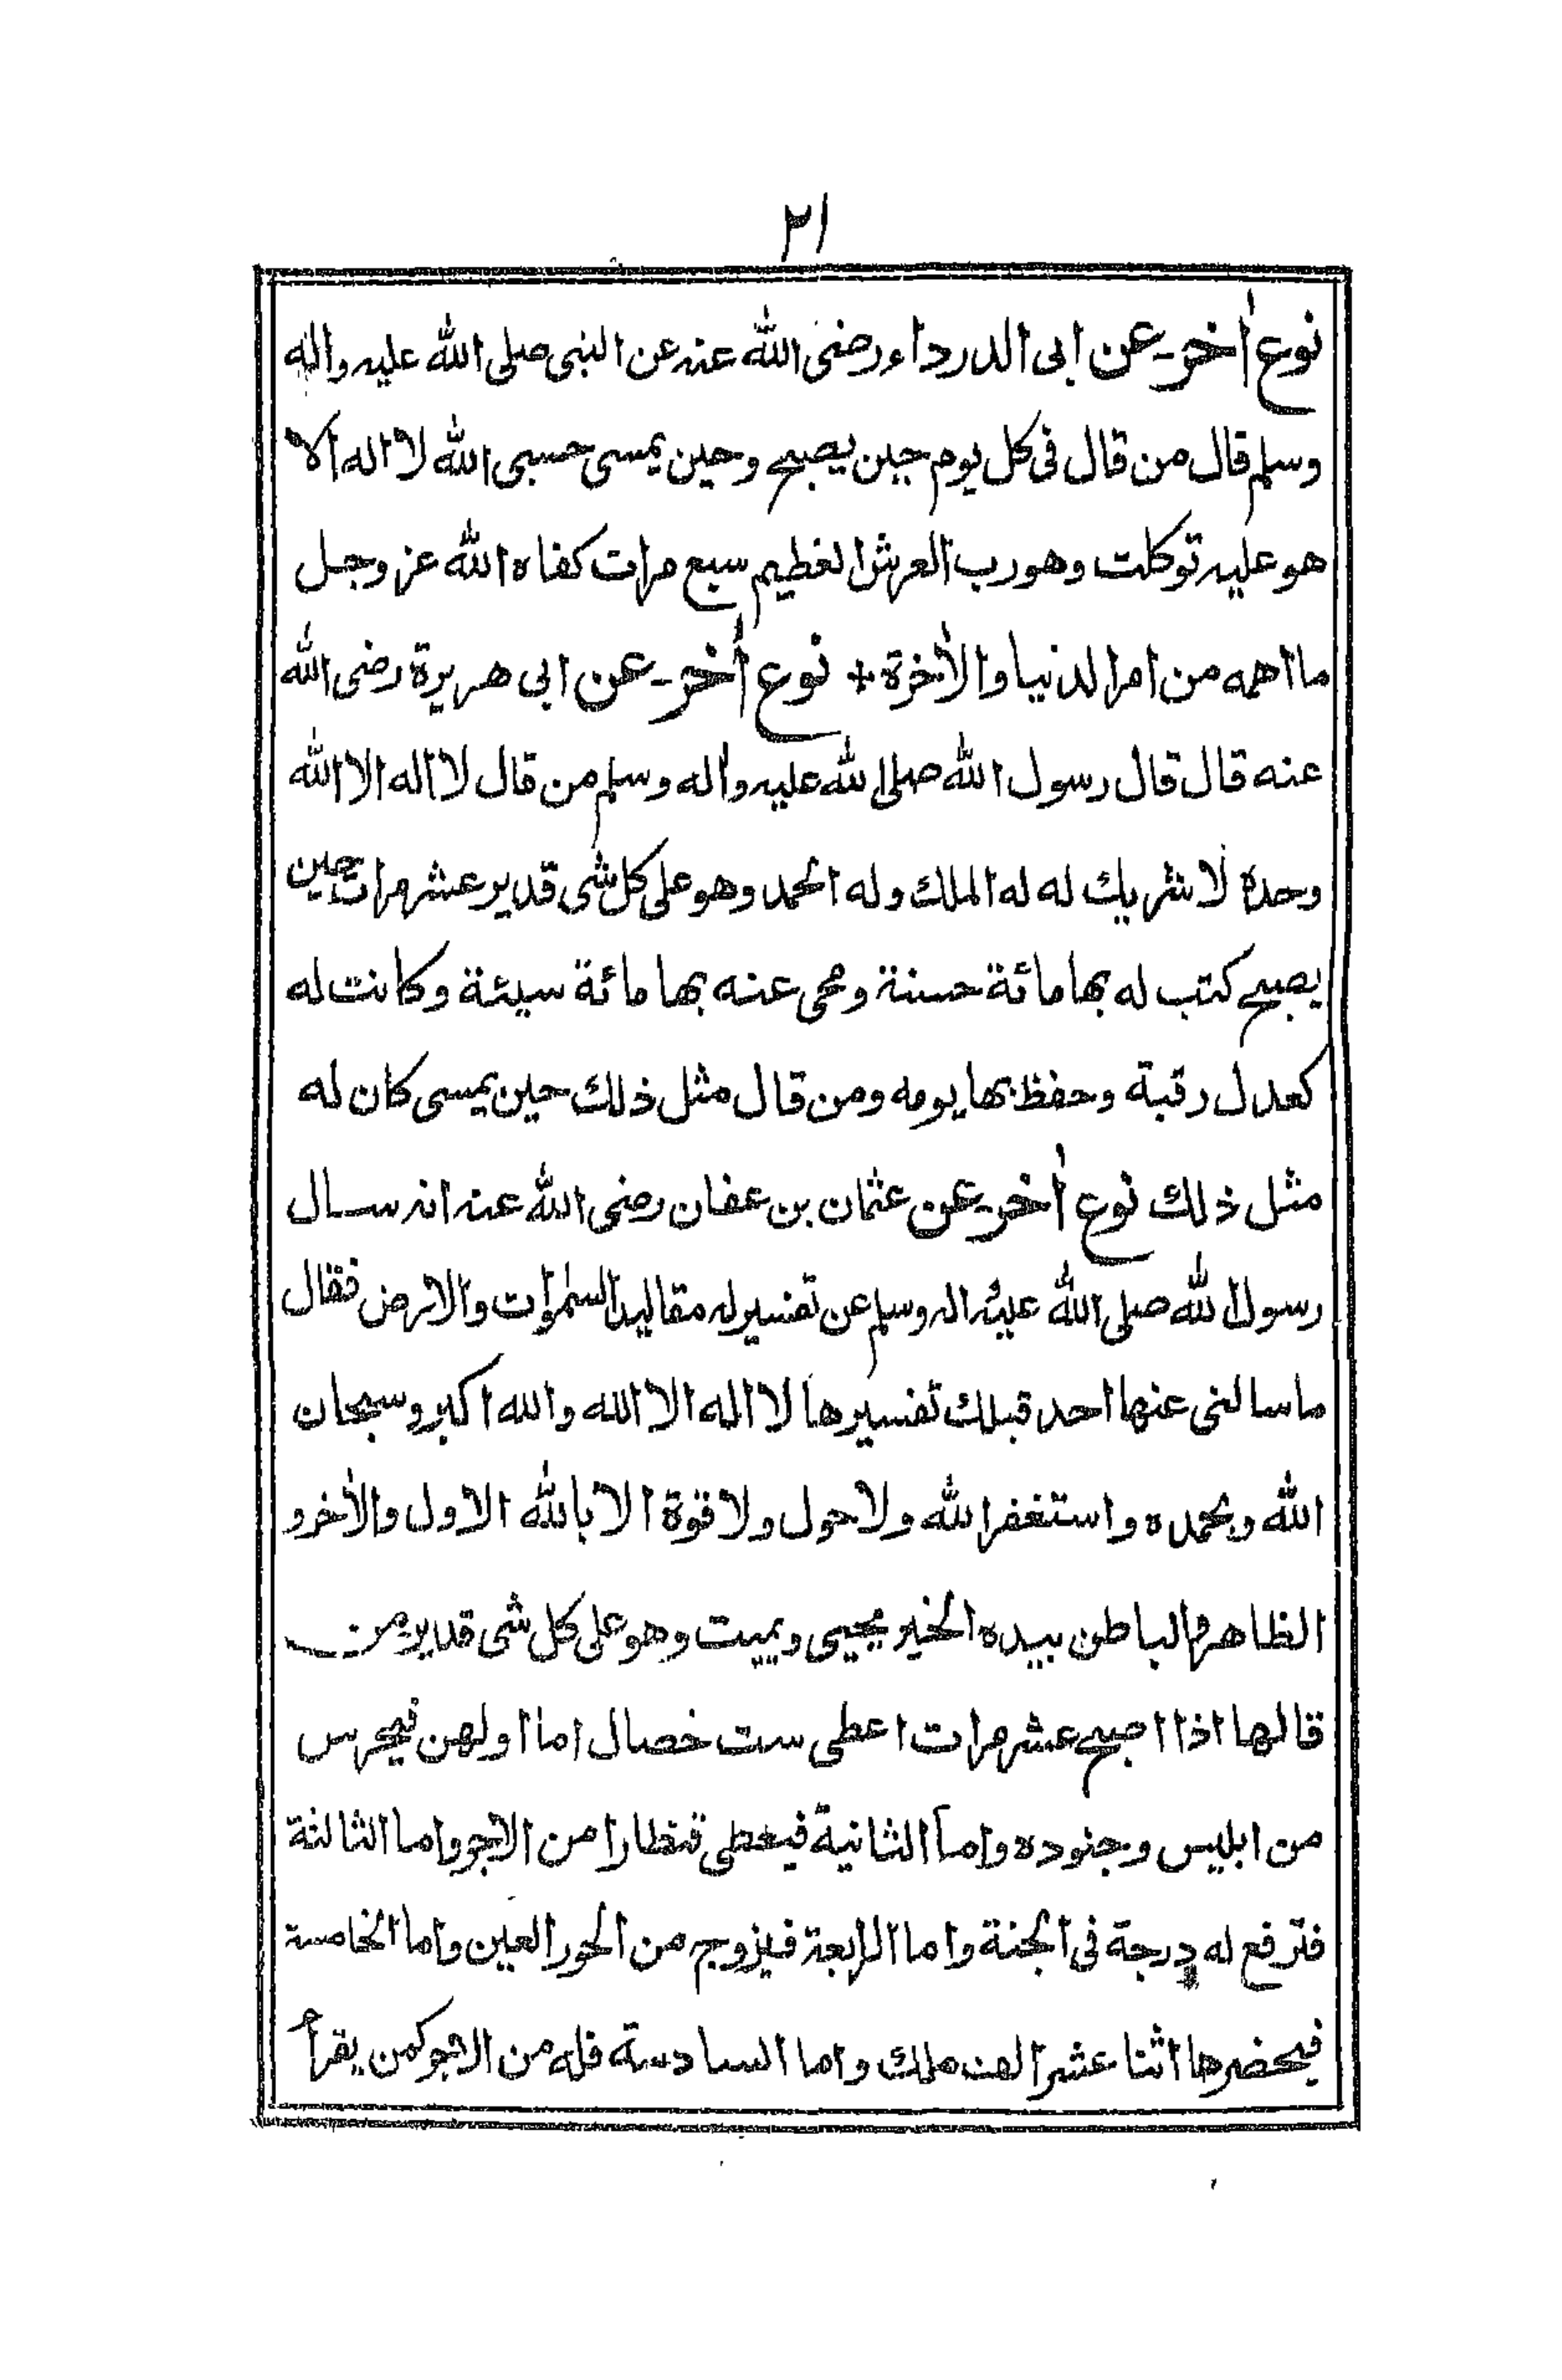 ٢١
نوع اٰخر۔ عن ابی الدرداء رضی اللّٰه عنه عن النبی صلی اللّٰه علیه واٰله
وسلم قال من قال فی کل یوم حین یصبح وحین یمسی حسبی اللّٰه لا اله الا
هو علیه توکلت وهو رب العرش العظیم سبع مرات کفاه اللّٰه عز وجل
ما اهمه من امر الدنیا والاٰخرة + نوع اٰخر۔ عن ابی هریرة رضی اللّٰه
عنه قال قال رسول اللّٰه صلی اللّٰه علیه واٰله وسلم من قال لا اله الا اللّٰه
وحده لا شریك له له الملك وله الحمد وهو علی کل شی قدیر عشر مرات حین
یصبح کتب له بها مائة حسنة ومحی عنه بها مائة سیئة وکانت له
کعدل رقبة وحفظ بها یومه ومن قال مثل ذلك حین یمسی کان له
مثل ذلك نوع اٰخر۔ عن عثمان بن عفان رضی اللّٰه عنه انه سال
رسول اللّٰه صلی اللّٰه علیه واله وسلم عن تفسیر له مقالید السمٰوات والارض فقال
ما سالنی عنها احد قبلك تفسیرها لا اله الا الله والله اکبر وسبحان
اللّٰه وبحمده واستغفر اللّٰه ولا حول ولا قوة الا باللّٰه الاول والاٰخر و
الظاهر والباطن بیده الخیر یحیی ویمیت وهو علی کل شی قدیر من
قالها اذا اصبح عشر مرات اعطی ست خصال اما اولهن فیحرس
من ابلیس وجنوده واما الثانیة فیعطی قنطارا من الاجر واما الثالثة
فترفع له درجة فی الجنة واما الرابعة فیزوج من الحور العین واما الخامسة
فیحضرها اثنا عشر الف ملك واما السادسة فله من الاجر کمن یقرأ